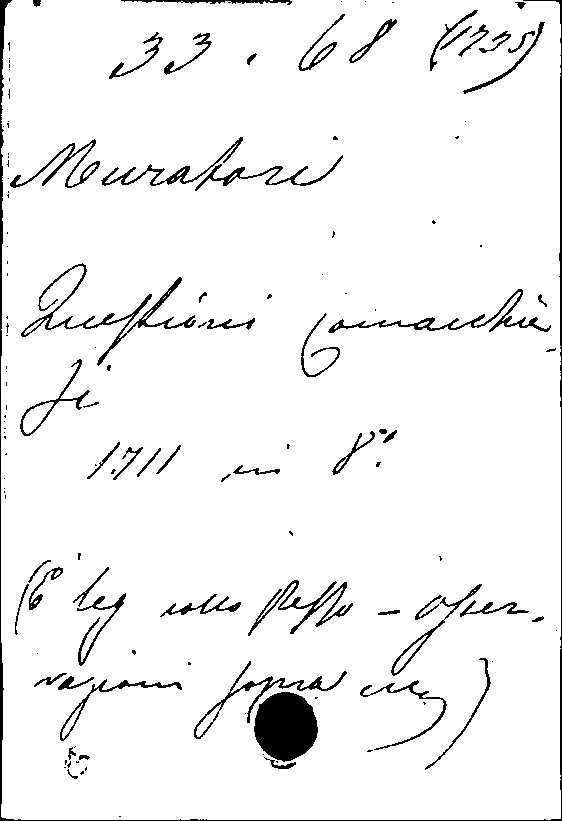 33. 68 (1735)
Muratori
Questioni Comacchie-
si
1711 in 8.°
(È leg collo stesso - Osser-
vazioni sopra una)